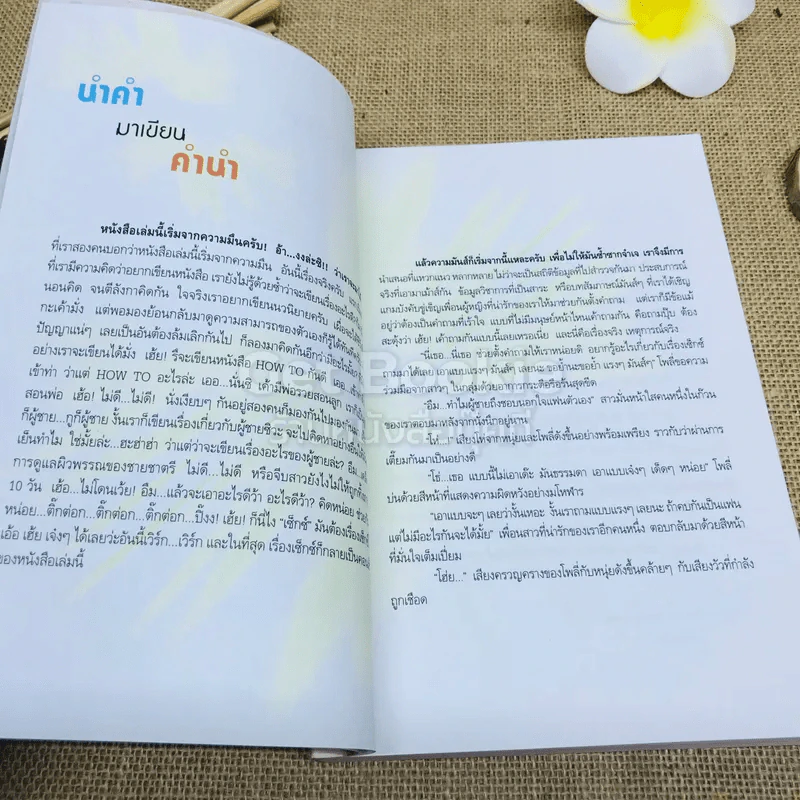 นำคำ
มาเขียน
คำนำ
หนังสือเล่มนี้เริ่มจากความมึนครับ! อ้า...งงล่ะซิ!!
ที่เราสองคนบอกว่าหนังสือเล่มนี้เริ่มจากความมึน อันนี้เรื่องจริงครับ
ที่เรามีความคิดว่าอยากเขียนหนังสือ เรายังไม่รู้ด้วยซ้ำว่าจะเขียนเรื่องอะไร
นอนคิด จนตีลังกาคิดกัน ใจจริงเราอยากเขียนนวนิยายครับ
กะเค้ามั่ง แต่พอมองย้อนกลับมาดูความสามารถของตัวเองก็รู้ได้ทันที
ปัญญาแน่ๆ เลยเป็นอันต้องล้มเลิกกันไป ก็ลองมาคิดกันอีกว่ามีอะไร
อย่างเราจะเขียนได้มั่ง เฮ้ย! รึจะเขียนหนังสือ HOW TO กันดี เออ...
เข้าท่า ว่าแต่ HOW TO อะไรล่ะ เออ...นั่นซิ เค้ามีพ่อรวยสอนลูก
สอนพ่อ เฮ้อ! ไม่ดี...ไม่ดี! นั่งเงียบๆ กันอยู่สองคนก็มองกันไปมองกันมา
ก็ผู้ชาย ...กูก็ผู้ชาย งั้นเราก็เขียนเรื่องเกี่ยวกับผู้ชายซิวะ จะไปคิดทำอย่างอื่น
เย็นทำไม ใช่มั้ยล่ะ...ฮะฮ่าฮ่า ว่าแต่ว่าจะเขียนเรื่องอะไรของผู้ชายล่ะ? อืม
การดูแลผิวพรรณของชายชาตรี ไม่ดี...ไม่ดี หรือจีบสาวยังไงไม่ให้ถูกทิ้ง
10 วัน เฮ้อ...ไม่โดนเว้ย! อืม...แล้วจะเอาอะไรดีว้า อะไรดีว้า? คิดหน่อย
หน่อย...ติ๊กต่อก...ติ๊กต่อก...ติ๊กต่อก...ปิ๊งง! เฮ้ย! ก็นี่ไง "เซ็กซ์" มันต้องเรื่อง
เอ้อ เฮ้ย เจ๋งๆ ได้เลยว่ะอันนี้เวิร์ก...เวิร์ก และในที่สุด เรื่องเซ็กซ์ก็กลายเป็น
ของหนังสือเล่มนี้
แล้วความมันส์ก็เริ่มจากนี้แหละครับ เพื่อไม่ให้มันซ้ำซากจำเจ เราจึงมีการ
นำเสนอที่แหวกแนว หลากหลาย ไม่ว่าจะเป็นสถิติข้อมูลที่ไปสำรวจกันมา ประสบการณ์
จริงที่เอามาเม้าส์กัน ข้อมูลวิชาการที่เป็นสาระ หรือบทสัมภาษณ์มันส์ๆ ที่เราได้เชิญ
แกมบังคับขู่เข็ญเพื่อนผู้หญิงที่น่ารักของเราให้มาช่วยกันตั้งคำถาม แต่เราก็มีข้อแม้
อยู่ว่าต้องเป็นคำถามที่เร้าใจ แบบที่ไม่มีมนุษย์หน้าไหนเค้าถามกัน คือถามปุ๊บ ต้อง
สะดุ้งว่า เฮ้ย! เค้าถามกันแบบนี้เลยเหรอเนี่ย และนี่คือเรื่องจริง เหตุการณ์จริง
"นี่เธอ...นี่เธอ ช่วยตั้งคำถามให้เราหน่อยดิ อยากรู้อะไรเกี่ยวกับเรื่องเซ็กซ์
ถามมาได้เลย เอาแบบแรงๆ มันส์ๆ เลยนะ ขอบ้านะขอย้ำ แรงๆ มันส์ๆ" โพลี่ขอความ
ร่วมมือจากสาวๆ ในกลุ่มด้วยอาการกระดี๊กระด๊าสุดขีด
"อืม...ทำไมผู้ชายถึงชอบนอกใจแฟนตัวเอง" สาวมั่นหน้าใสคนหนึ่งในก๊วน
ของเราตอบมาหลังจากนั่งนึกอยู่นาน
"โห..." เสียงไห่จากหนุ่ยและโพลี่ดังขึ้นอย่างพร้อมเพรียง ราวกับว่าผ่านการ
เตี๊ยมกันมาเป็นอย่างดี
"โธ่...เธอ แบบนี้ไม่เอาเด้ะ มันธรรมดา เอาแบบเจ๋งๆ เด็ดๆ หน่อย" โพลี่
บ่นด้วยสีหน้าที่แสดงความผิดหวังอย่างมโหฬาร
"เอาแบบจะๆ เลยว่างั้นเหอะ งั้นเราถามแบบแรงๆ เลยนะ ถ้าคบกันเป็นแฟน
แต่ไม่มีอะไรกันจะได้มั้ย" เพื่อนสาวที่น่ารักของเราอีกคนหนึ่ง ตอบกลับมาด้วยสีหน้า
ที่มั่นใจเต็มเปี่ยม
"โฮ่ย..." เสียงครวญครางของโพลี่กับหนุ่ยดังขึ้นคล้ายๆ กับเสียงวัวที่กำลัง
ถูกเชือด